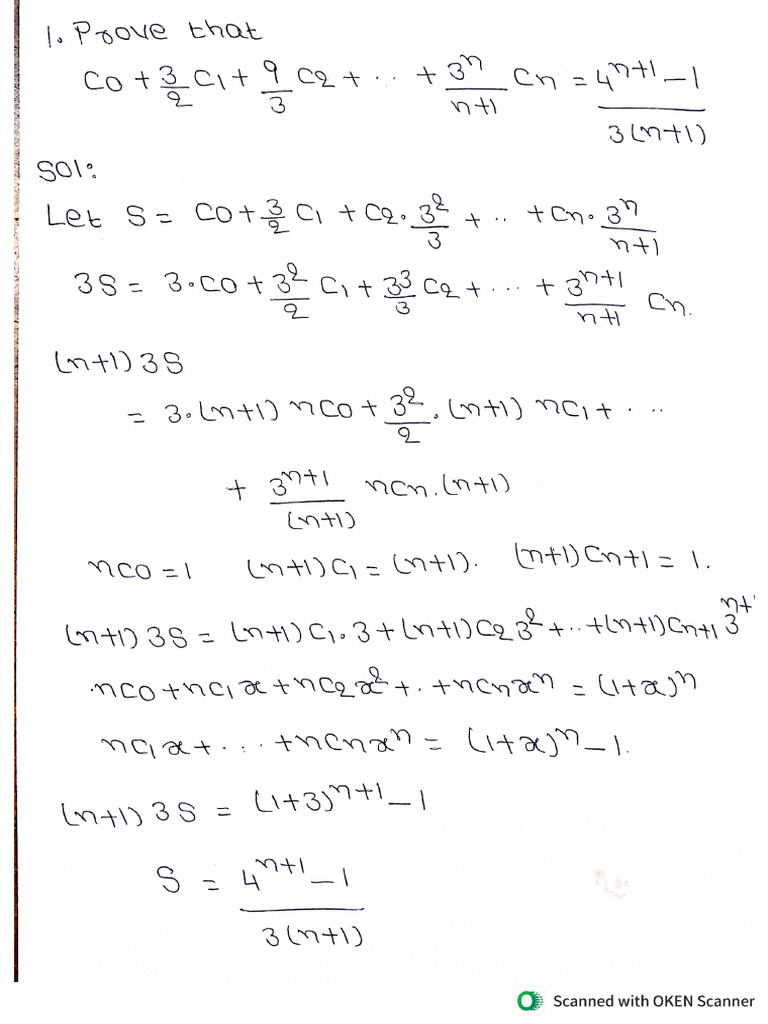 1. Prove that
C0 + 3/2 C1 + 9/3 C2 + .. + 3^n/n+1 Cn = 4^n+1 - 1 / 3(n+1)
Sol:
Let S = C0 + 3/2 C1 + C2 . 3^2/3 + .. + Cn . 3^n/n+1
3S = 3.C0 + 3^2/2 C1 + 3^3/3 C2 + ... + 3^n+1/n+1 Cn.
(n+1) 3S
= 3.(n+1) nC0 + 3^2/2 . (n+1) nC1 + ...
+ 3^n+1/(n+1) nCn.(n+1)
nC0 = 1 (n+1)C1 = (n+1). (n+1)Cn+1 = 1.
(n+1) 3S = (n+1)C1.3 + (n+1)C2 3^2 + .. + (n+1)Cn+1 3^n+
nC0 + nC1x + nC2x^2 + . + nCnx^n = (1+x)^n
nC1x + ... + nCnx^n = (1+x)^n - 1.
(n+1) 3S = (1+3)^n+1 - 1
S = 4^n+1 - 1 / 3(n+1)
Scanned with OKEN Scanner